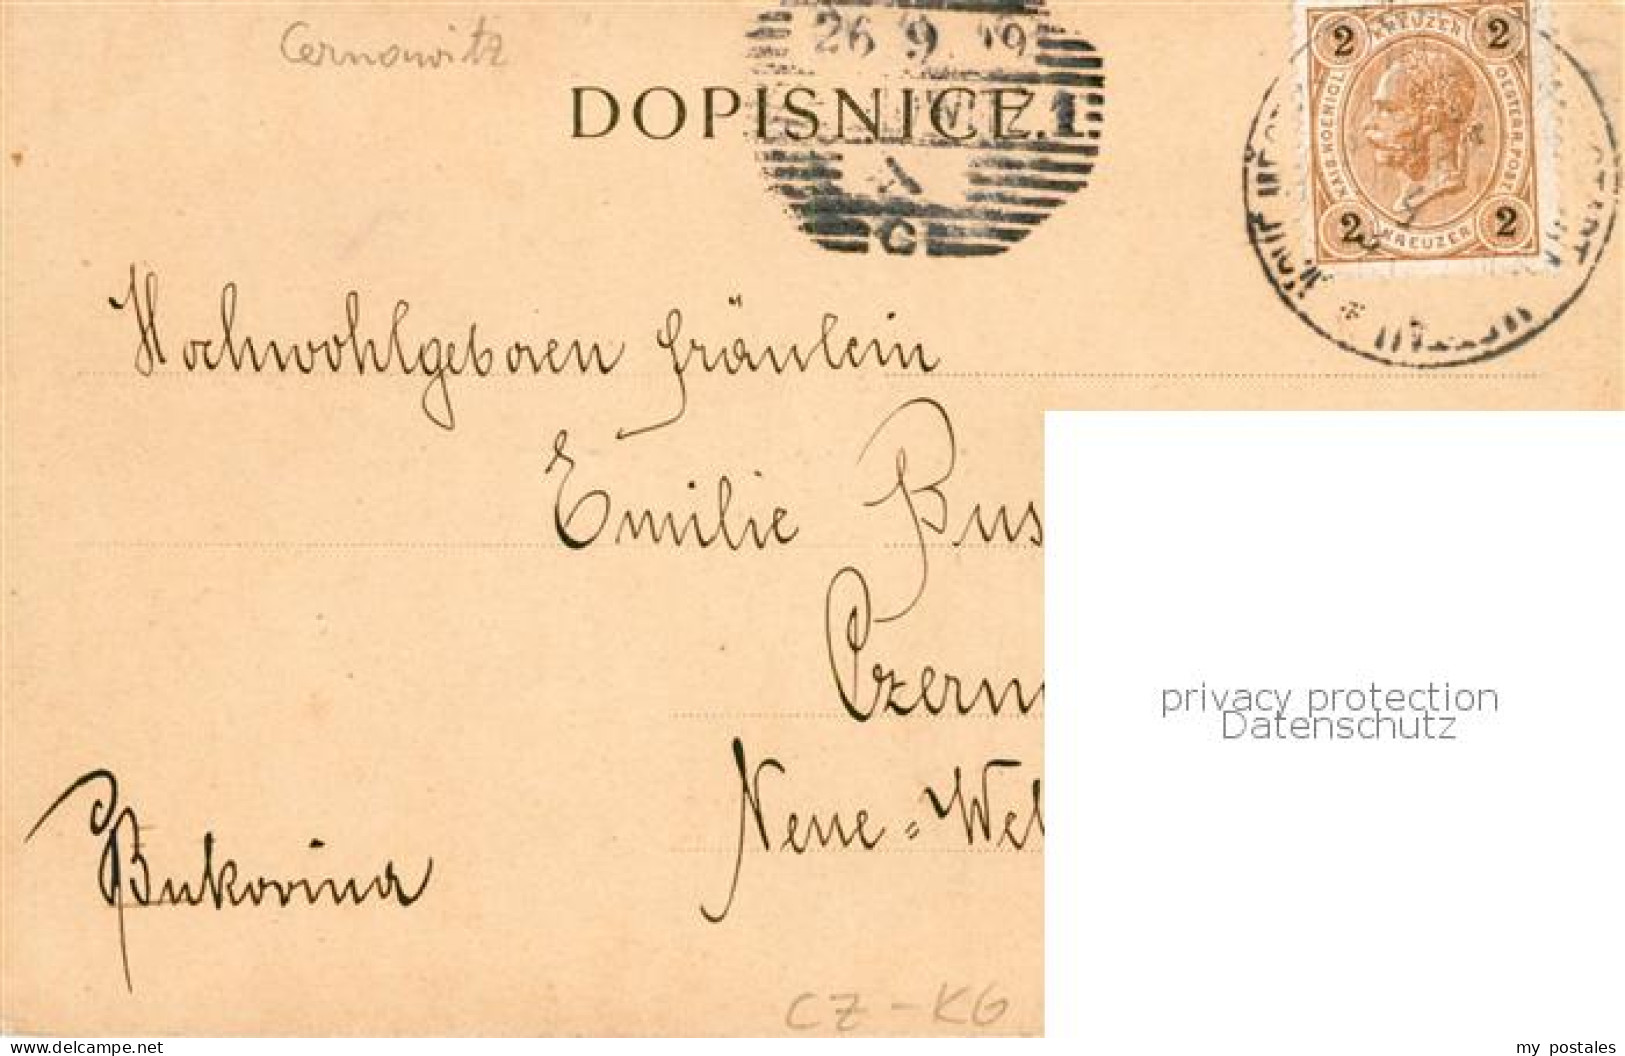 Cernowitz
26 9 99
DOPISNICE.
C
2 KREUZER 2
KAIS. KOENIGL. OESTERR. POST
2 KREUZER 2
Hochwohlgeboren Fräulein
Emilie Bus
Czern
Neue=Wel
Bukovina
privacy protection
Datenschutz
CZ-KG
MADE IN GERMANY mit akpool.de
my_postales